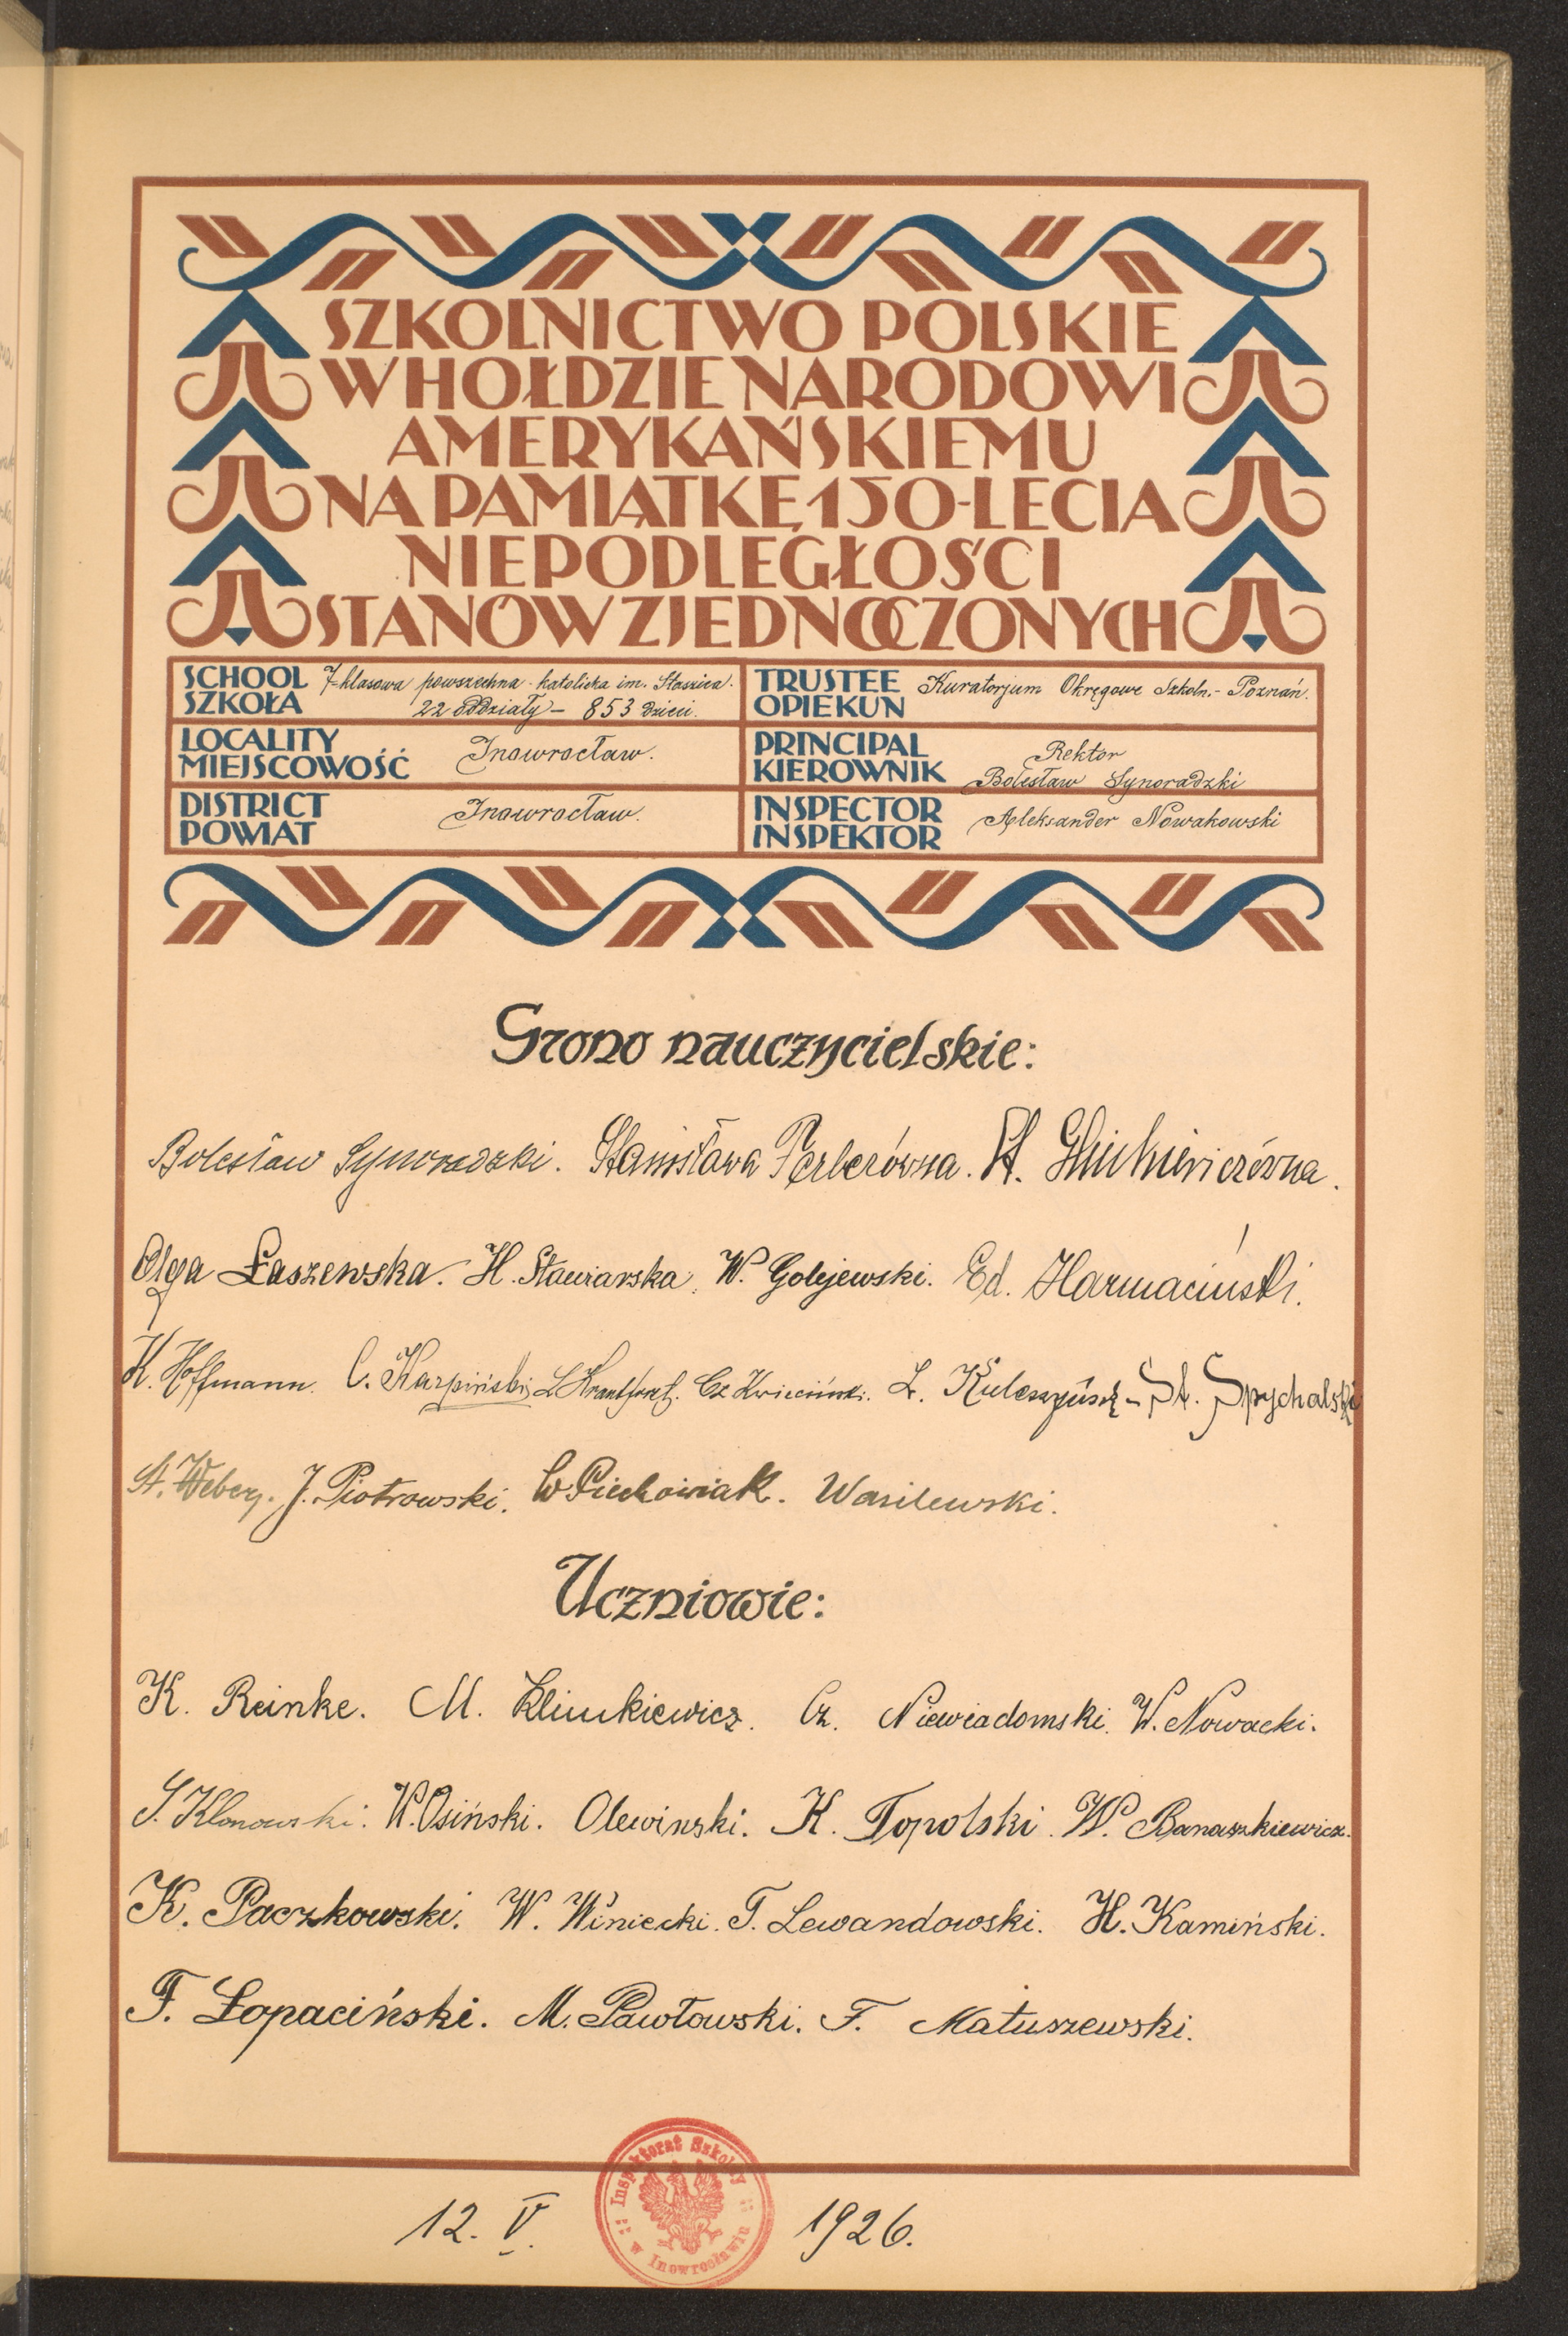 SZKOLNICTWO POLSKIE
W HOŁDZIE NARODOWI
AMERYKAŃSKIEMU
NA PAMIĄTKĘ 150-LECIA
NIEPODLEGŁOŚCI
STANÓW ZJEDNOCZONYCH
SCHOOL 7-klasowa powszechna katolicka im. Staszica.
SZKOŁA 22 oddziały - 853 dzieci.
TRUSTEE Kuratorjum Okręgowe Szkoln. - Poznań.
OPIEKUN
LOCALITY
MIEJSCOWOŚĆ Inowrocław.
PRINCIPAL Rektor
KIEROWNIK Bolesław Synoradzki
DISTRICT
POWIAT Inowrocław.
INSPECTOR
INSPEKTOR Aleksander Nowakowski
Grono nauczycielskie:
Bolesław Synoradzki. Stanisława Ferberówna. St.
Olga Łaszewska. H. Stawiarska. W. Golejewski. Ed. Harmaciński.
K. Hoffmann. C. Karpiński Cz Kwieciński. Ł. St. Spychalski
St. Weber. J. Piotrowski. W Piechowiak. Wasilewski.
Uczniowie:
K. Reinke. M. Klimkiewicz. Cz. Niewiadomski. W. Nowacki.
S. Klonowski. W. Osiński. Olewinski. K. Topolski. W. Banaszkiewicz.
K. Paczkowski. W. Winiecki. T. Lewandowski. H. Kamiński.
F. Łopaciński. M. Pawłowski. F. Matuszewski.
Inspektorat Szkolny
w Inowrocławiu
12. V. 1926.